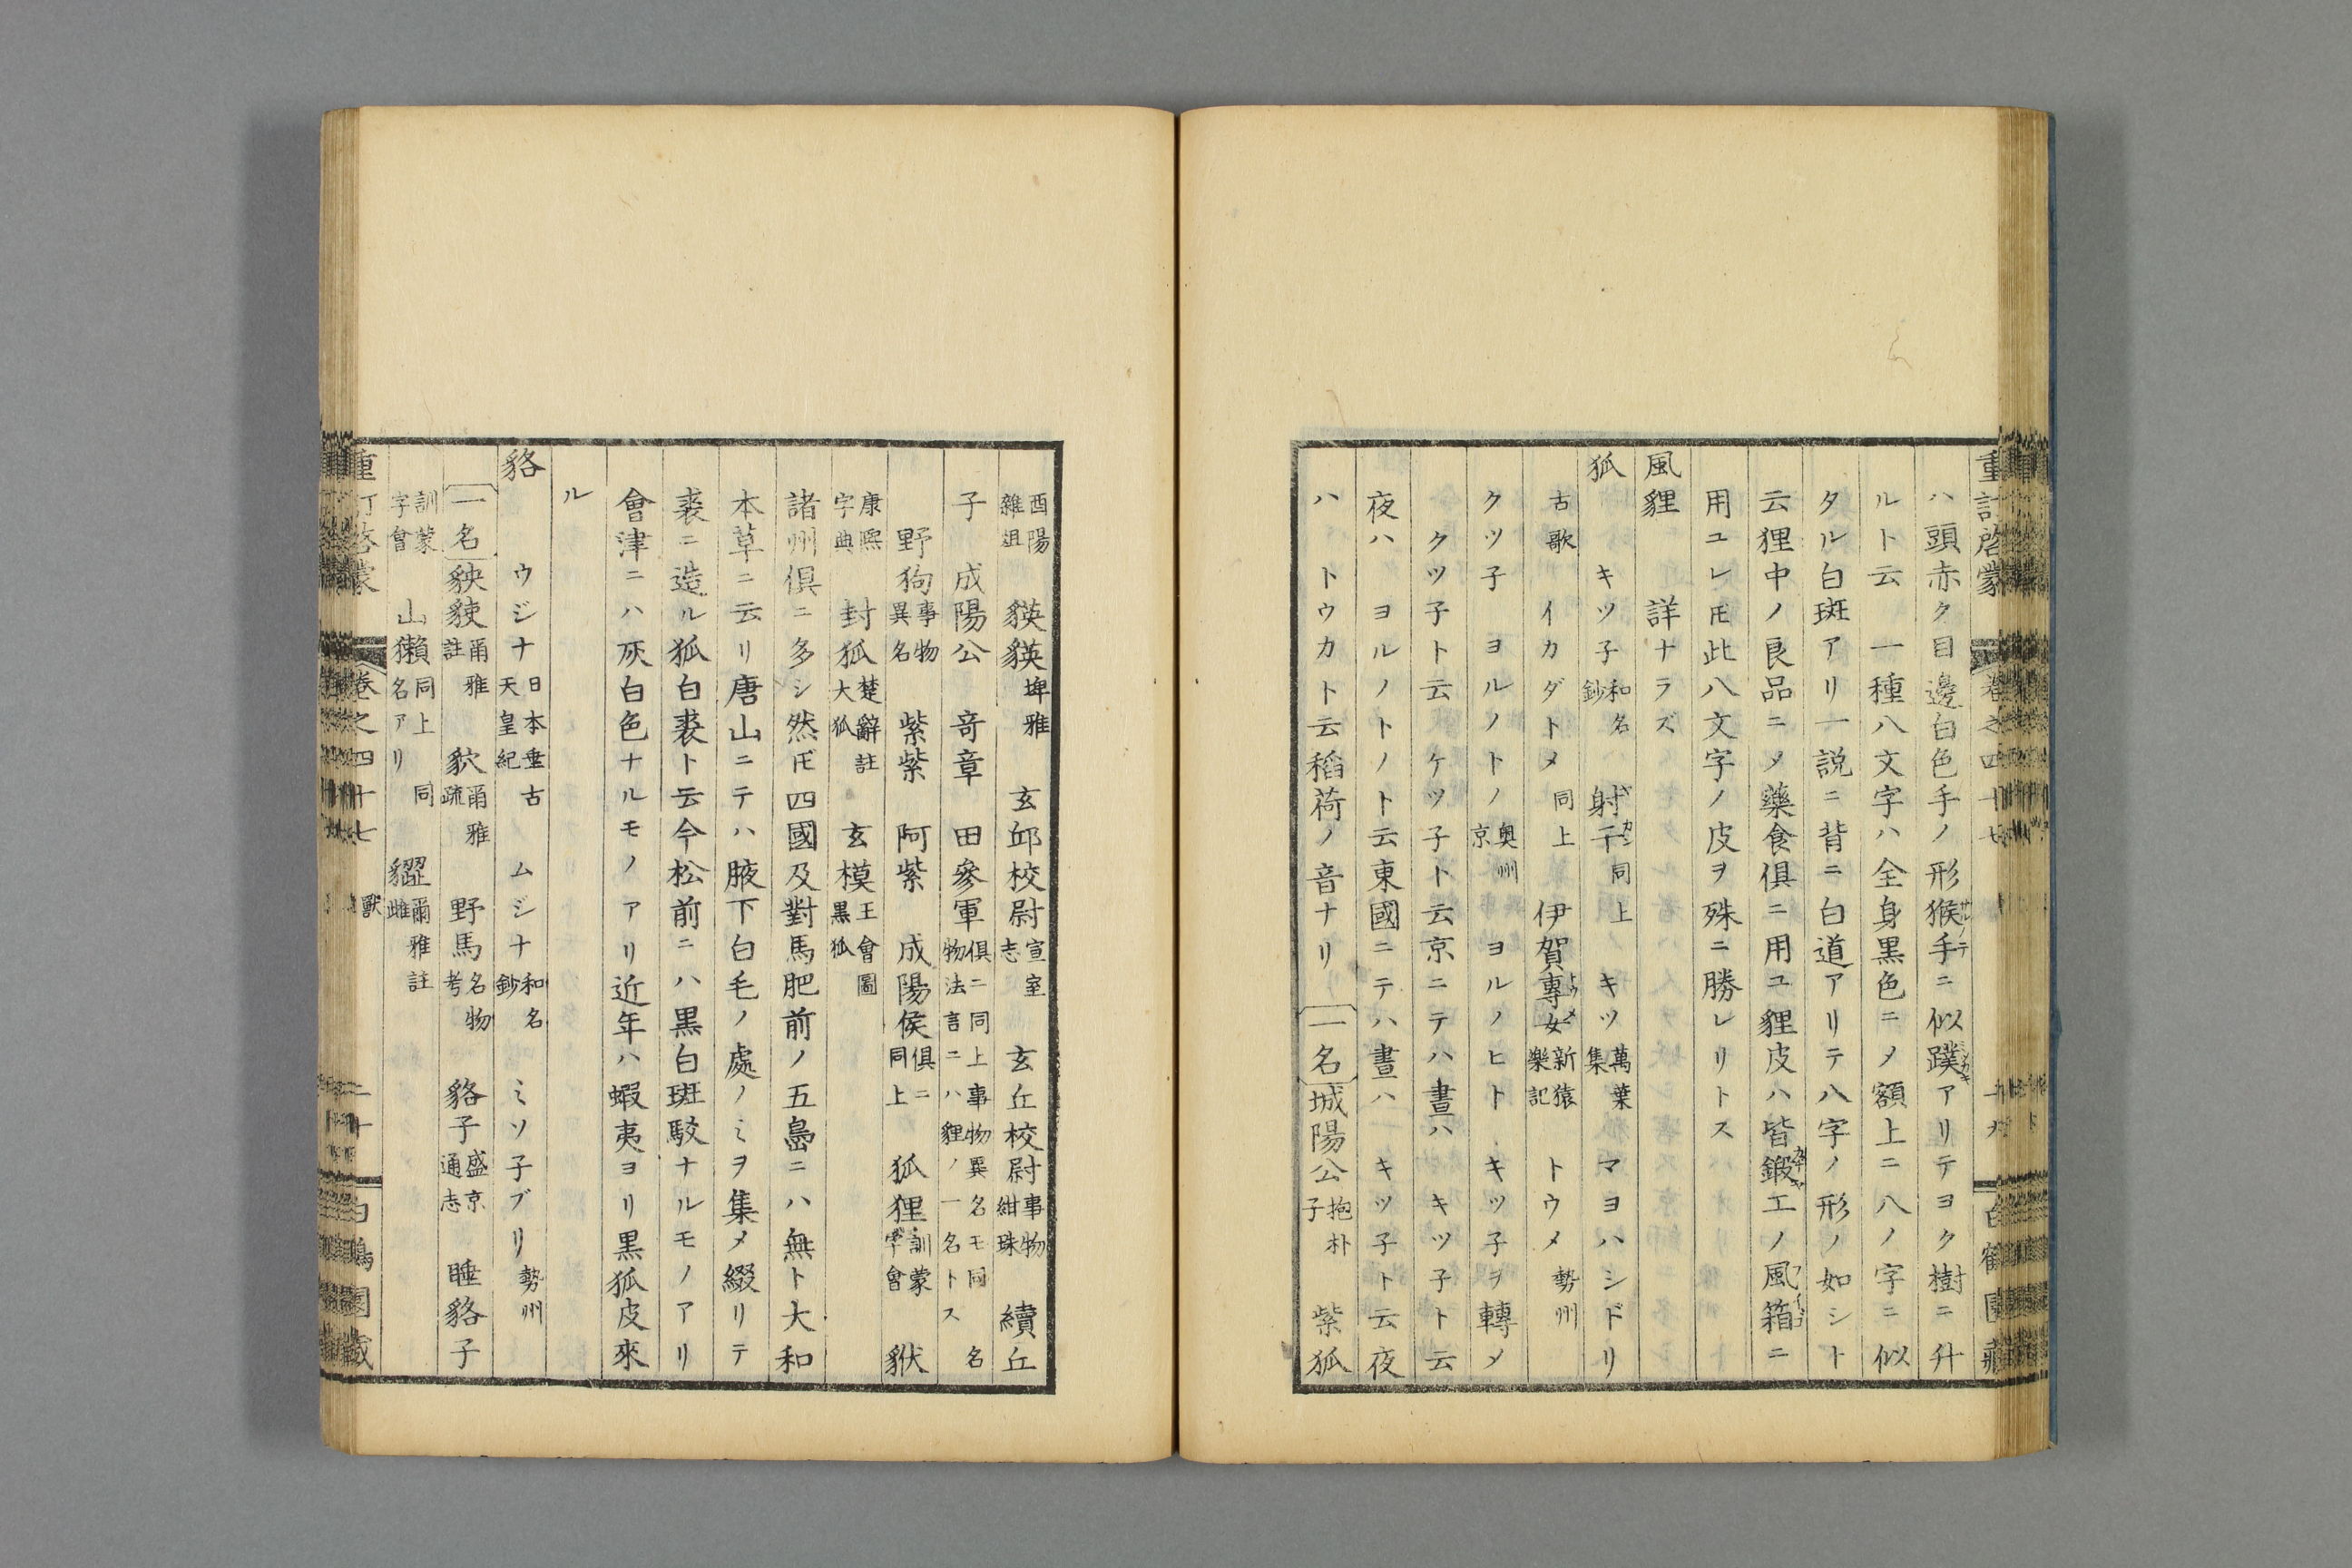 重訂啓蒙 卷之四十七 十九 白鶴園藏
ハ頭赤ク目邊白色手ノ形猴手ニ似蹼アリテヨク樹ニ升
ルト云 一種八文字ハ全身黒色ニメ額上ニ八ノ字ニ似
タル白斑アリ一説ニ背ニ白道アリテ八字ノ形ノ如シト
云狸中ノ良品ニメ藥食倶ニ用ユ貍皮ハ皆鍜工ノ風箱ニ
用ユレ𪜈此八文字ノ皮ヲ殊ニ勝レリトス
風貍 詳ナラズ
狐 キツ子和名鈔 射干同上 キツ萬葉集 マヨハシドリ
古歌 イカダトメ同上 伊賀專女新猿樂記 トウメ勢州
クツ子 ヨルノトノ奥州京 ヨルノヒト キツ子ヲ轉メ
クツ子ト云 ケツ子ト云京ニテハ晝ハ キツ子ト云
夜ハ ヨルノトノト云東國ニテハ晝ハ キツ子ト云夜
ハ トウカト云稻荷ノ音ナリ 一名城陽公抱朴子 紫狐
酉陽雜俎 貘貘埤雅 玄邱校尉宣室志 玄丘校尉事物紺珠 續丘
子 成陽公 竒章 田參軍倶ニ同上事物異名モ同名物法言ニハ貍ノ一名トス
野狗事物異名 紫紫 阿紫 成陽侯倶ニ同上 狐狸訓蒙字會 㹜
康熙字典 封狐楚辭註大狐 玄模王會圖黒狐
諸州倶ニ多シ然𪜈四國及對馬肥前ノ五㠀ニハ無ト大和
本草ニ云リ唐山ニテハ腋下白毛ノ處ノミヲ集メ綴リテ
裘ニ造ル狐白裘ト云今松前ニハ黒白斑駁ナルモノアリ
會津ニハ灰白色ナルモノアリ近年ハ蝦夷ヨリ黒狐皮來
ル
貉 ウジナ日本垂古天皇紀 ムジナ和名鈔 ミソ子ブリ勢州
一名䝘䝘爾雅註 㹜爾雅疏 野馬名物考 貉子盛京通志 睡貉子
訓蒙字會 山獺同上同名アリ 貜爾雅註雌
重訂啓蒙 卷之四十七 獸 二十 白鶴園藏